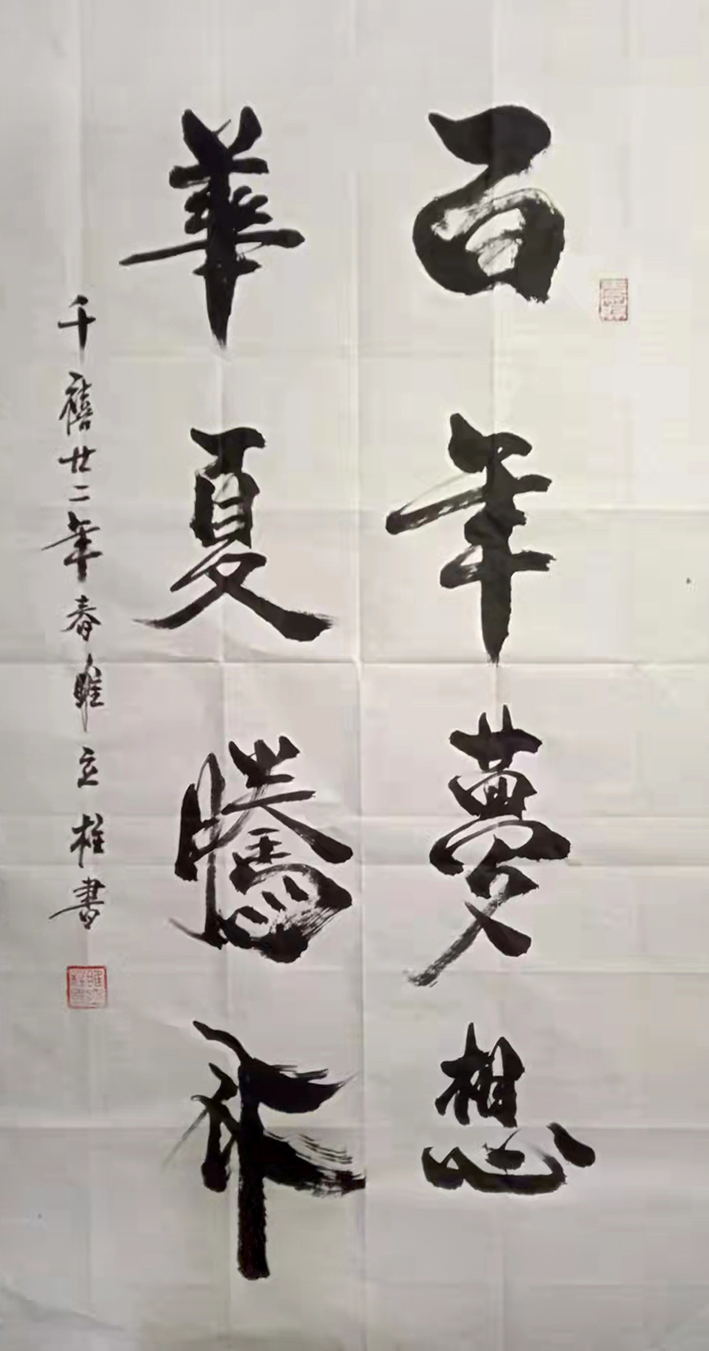 百年夢想
華夏騰飛
千禧廿二年春睢立柱書